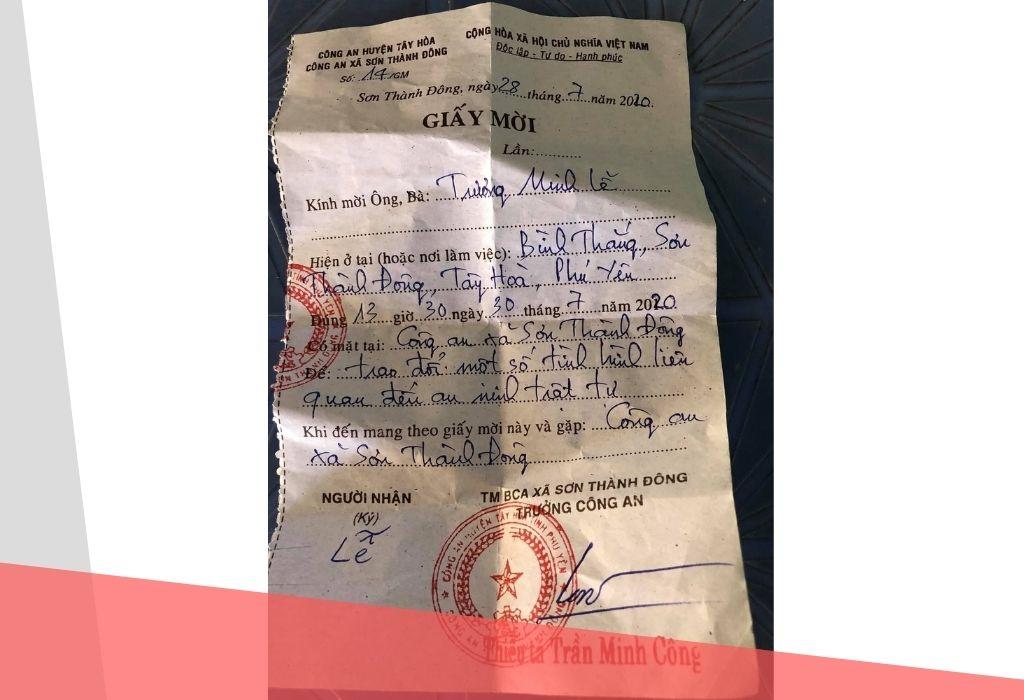 CÔNG AN HUYỆN TÂY HÒA
CÔNG AN XÃ SƠN THÀNH ĐÔNG
Số: 14/GM
CỘNG HÒA XÃ HỘI CHỦ NGHĨA VIỆT NAM
Độc lập - Tự do - Hạnh phúc
Sơn Thành Đông, ngày 28 tháng 7 năm 2020.
GIẤY MỜI
Lần:...........
Kính mời Ông, Bà: Trương Minh Lễ
Hiện ở tại (hoặc nơi làm việc): Bình Thắng, Sơn
Thành Đông, Tây Hoà, Phú Yên
Đúng 13 giờ 30 ngày 30 tháng 7 năm 2020
Có mặt tại: Công an xã Sơn Thành Đông
Để: trao đổi một số tình hình liên
quan đến an ninh trật tự
Khi đến mang theo giấy mời này và gặp: Công an
xã Sơn Thành Đông
NGƯỜI NHẬN
(Ký)
Lễ
TM BCA XÃ SƠN THÀNH ĐÔNG
TRƯỞNG CÔNG AN
CÔNG AN HUYỆN TÂY HÒA TỈNH PHÚ YÊN
Thiếu tá Trần Minh Công